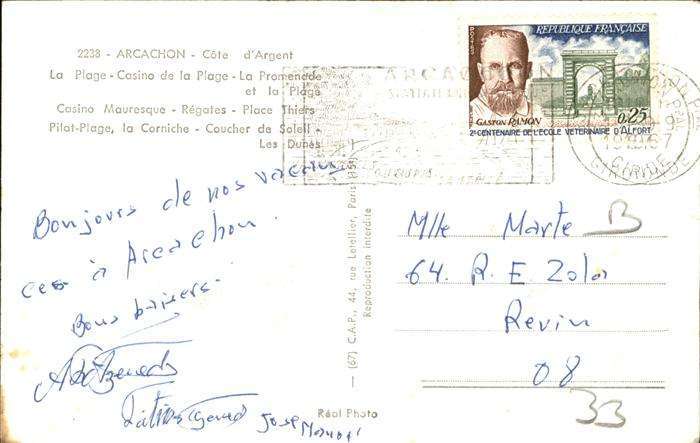 2238 - ARCACHON - Côte d'Argent
La Plage - Casino de la Plage - La Promenade
et la Plage
Casino Mauresque - Régates - Place Thiers
Pilat-Plage, la Corniche - Coucher de Soleil -
Les Dunes
RÉPUBLIQUE FRANÇAISE
GASTON RAMON
0,25
2e CENTENAIRE DE L'ÉCOLE VÉTÉRINAIRE D'ALFORT
ARCACHON
1967
GIRONDE
Bonjours de nos vacan
ces à Arcachon.
Bons baisers.
José Manuel
Mlle Marte B
64. R. E. Zola
Revin
08
33
— (67) C.A.P., 44, rue Letellier, Paris (15e)
Reproduction interdite
Réal Photo